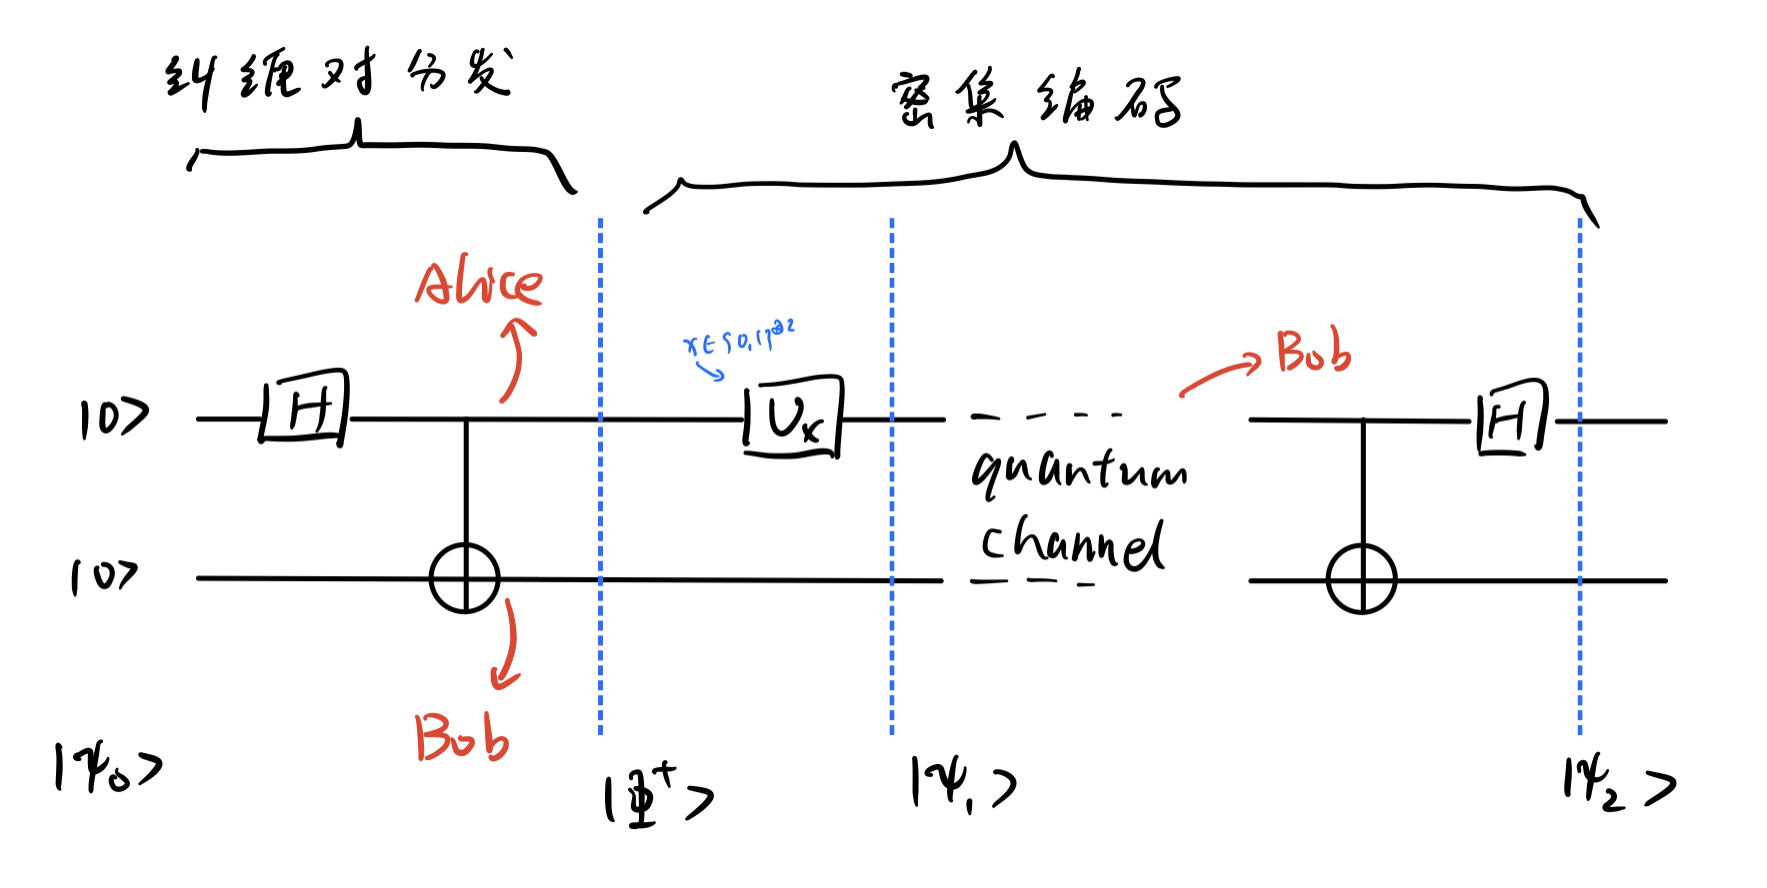 纠缠对分发
密集编码
Alice
x∈{0,1}⊗2
Bob
|0> H Ux H
quantum
channel
|0>
Bob
|ψ0> |Φ+> |ψ1> |ψ2>